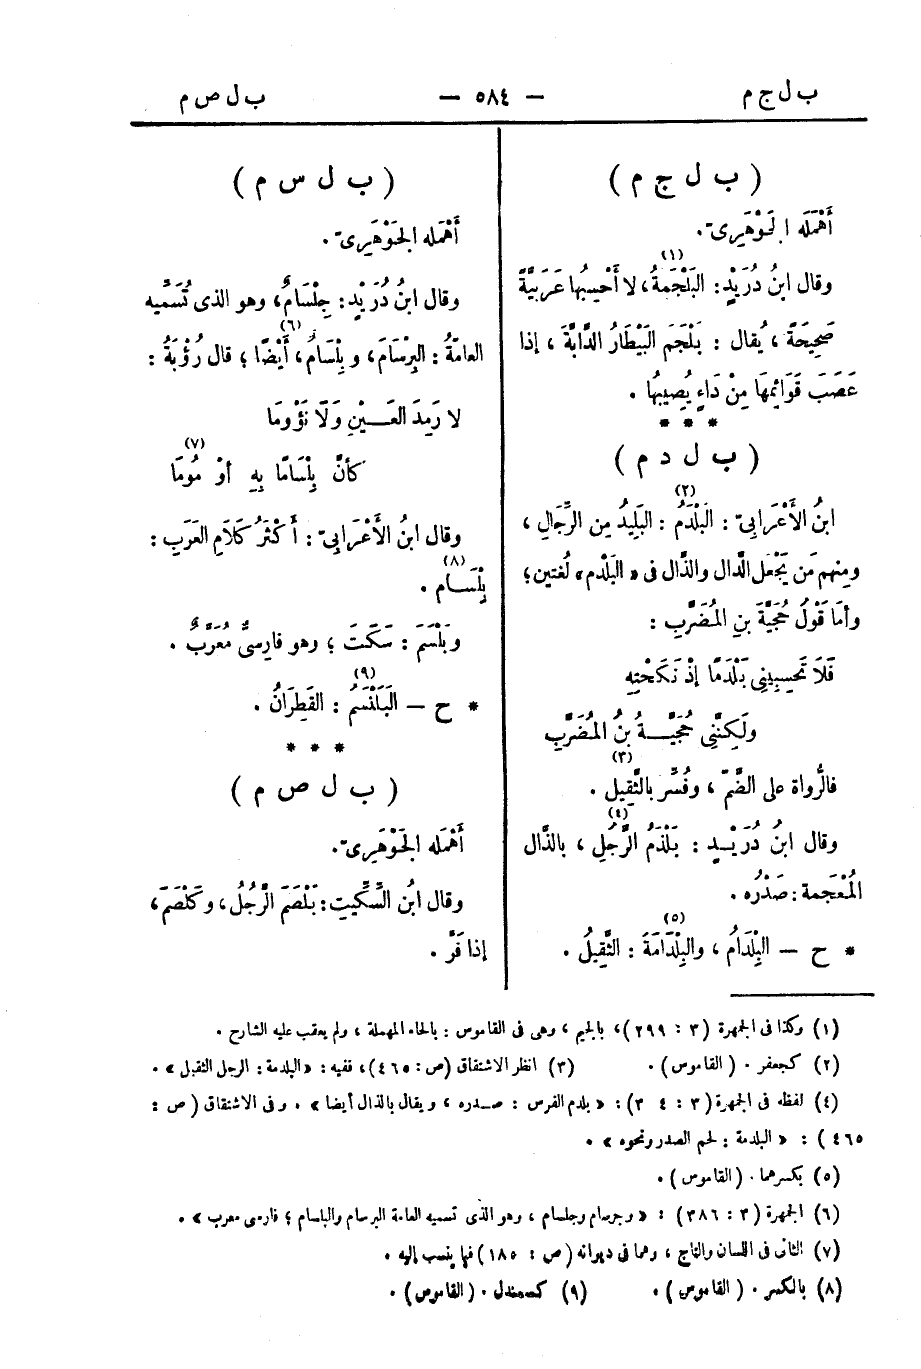 ب ل ج م
— ٥٨٤ —
ب ل ص م
( ب ل ج م )
أَهْمَلَه الجَوْهَرِىّ .
وقال ابنُ دُرَيْدٍ : البَلْجَمَةُ (١)، لا أَحْسِبُها عَرَبِيَّةً
صَحِيحَةً ، يُقال : بَلْجَمَ البَيْطَارُ الدَّابَّةَ ، إذا
عَصَبَ قَوَائِمَهَا مِنْ دَاءٍ يُصِيبُها .
* * *
( ب ل د م )
ابنُ الأَعْرَابِىّ : البَلْدَمُ (٢) : البَلِيدُ مِن الرِّجَالِ ،
ومِنهم مَن يَجْعَل الدال والذَّال فى « البَلْدم » لُغتين ؛
وأمَا قَوْلُ حُجَيَّةَ بنِ المُضَرِّبِ :
فَلَا تَحْسِبِينِى بَلْدَمًا إذْ نَكَحْتِهِ
ولَكِنَّنِى حُجَيَّـــةُ بنُ المُضَرَّبِ
فالرُّواة على الضَّمّ ، وفُسِّر بالثَّقِيل (٣) .
وقال ابنُ دُرَيْــدٍ : بَلْدَمُ الرَّجُلِ (٤) ، بالذَّال
المُعْجَمة : صَدْرُه .
* ح — البِلْدَامُ ، والبِلْدَامَةَ (٥) : الثَّقِيلُ .
( ب ل س م )
أَهْمَله الجَوْهَرِىّ .
وقال ابنُ دُرَيْدٍ : جِلْسَامٌ ، وهو الذى تُسَمِّيه
العامّةُ : البِرْسَامَ ، و بِلْسَامٌ (٦) ، أَيْضًا ؛ قال رُؤْبَةُ :
لا رَمِدَ العَـــيْنِ وَلَا نَؤُومَا
كأنَّ بِلْسَامًا بِهِ أوْ مُومَا (٧)
وقال ابنُ الأَعْرَابِىّ : أَكْثَرُ كَلَامِ العَرَبِ :
بِلْسَـام (٨) .
وبَلْسَمَ : سَكَتَ ؛ وهو فارِسِىٌّ مُعَرَّبٌ .
* ح — البَلَنْسَمُ (٩) : القَطِرَانُ .
* * *
( ب ل ص م )
أَهْمَله الجَوْهَرِىّ .
وقال ابنُ السِّكِّيتِ : بَلْصَمَ الرَّجُلُ ، وكَلْصَمَ ،
إذا فَرَّ .
(١) وكذا فى الجمهرة (٣ : ٢٩٩)، بالجيم ، وهى فى القاموس : بالحاء المهملة ، ولم يعقب عليه الشارح .
(٢) كجعفر . ( القاموس ) . (٣) انظر الاشتقاق (ص : ٤٦٥) ، ففيه : « البلدمة : الرجل الثقيل » .
(٤) لفظه فى الجمهرة (٣ : ٤ ٣) : « بلدم الفرس : صدره ، ويقال بالذال أيضا » . وفى الاشتقاق (ص :
٤٦٥) : « البلدمة : لحم الصدر ونحوه » .
(٥) بكسرهما . ( القاموس ) .
(٦) الجمهرة (٣ : ٣٨٦) : « وجرسام وجلسام ، وهو الذى تسميه العامة البرسام والبلسام ؛ فارسى معرب » .
(٧) الثانى فى اللسان والتاج ، وهما فى ديوانه (ص : ١٨٥) فيما ينسب إليه .
(٨) بالكسر . ( القاموس ) . (٩) كسمندل . ( القاموس ) .